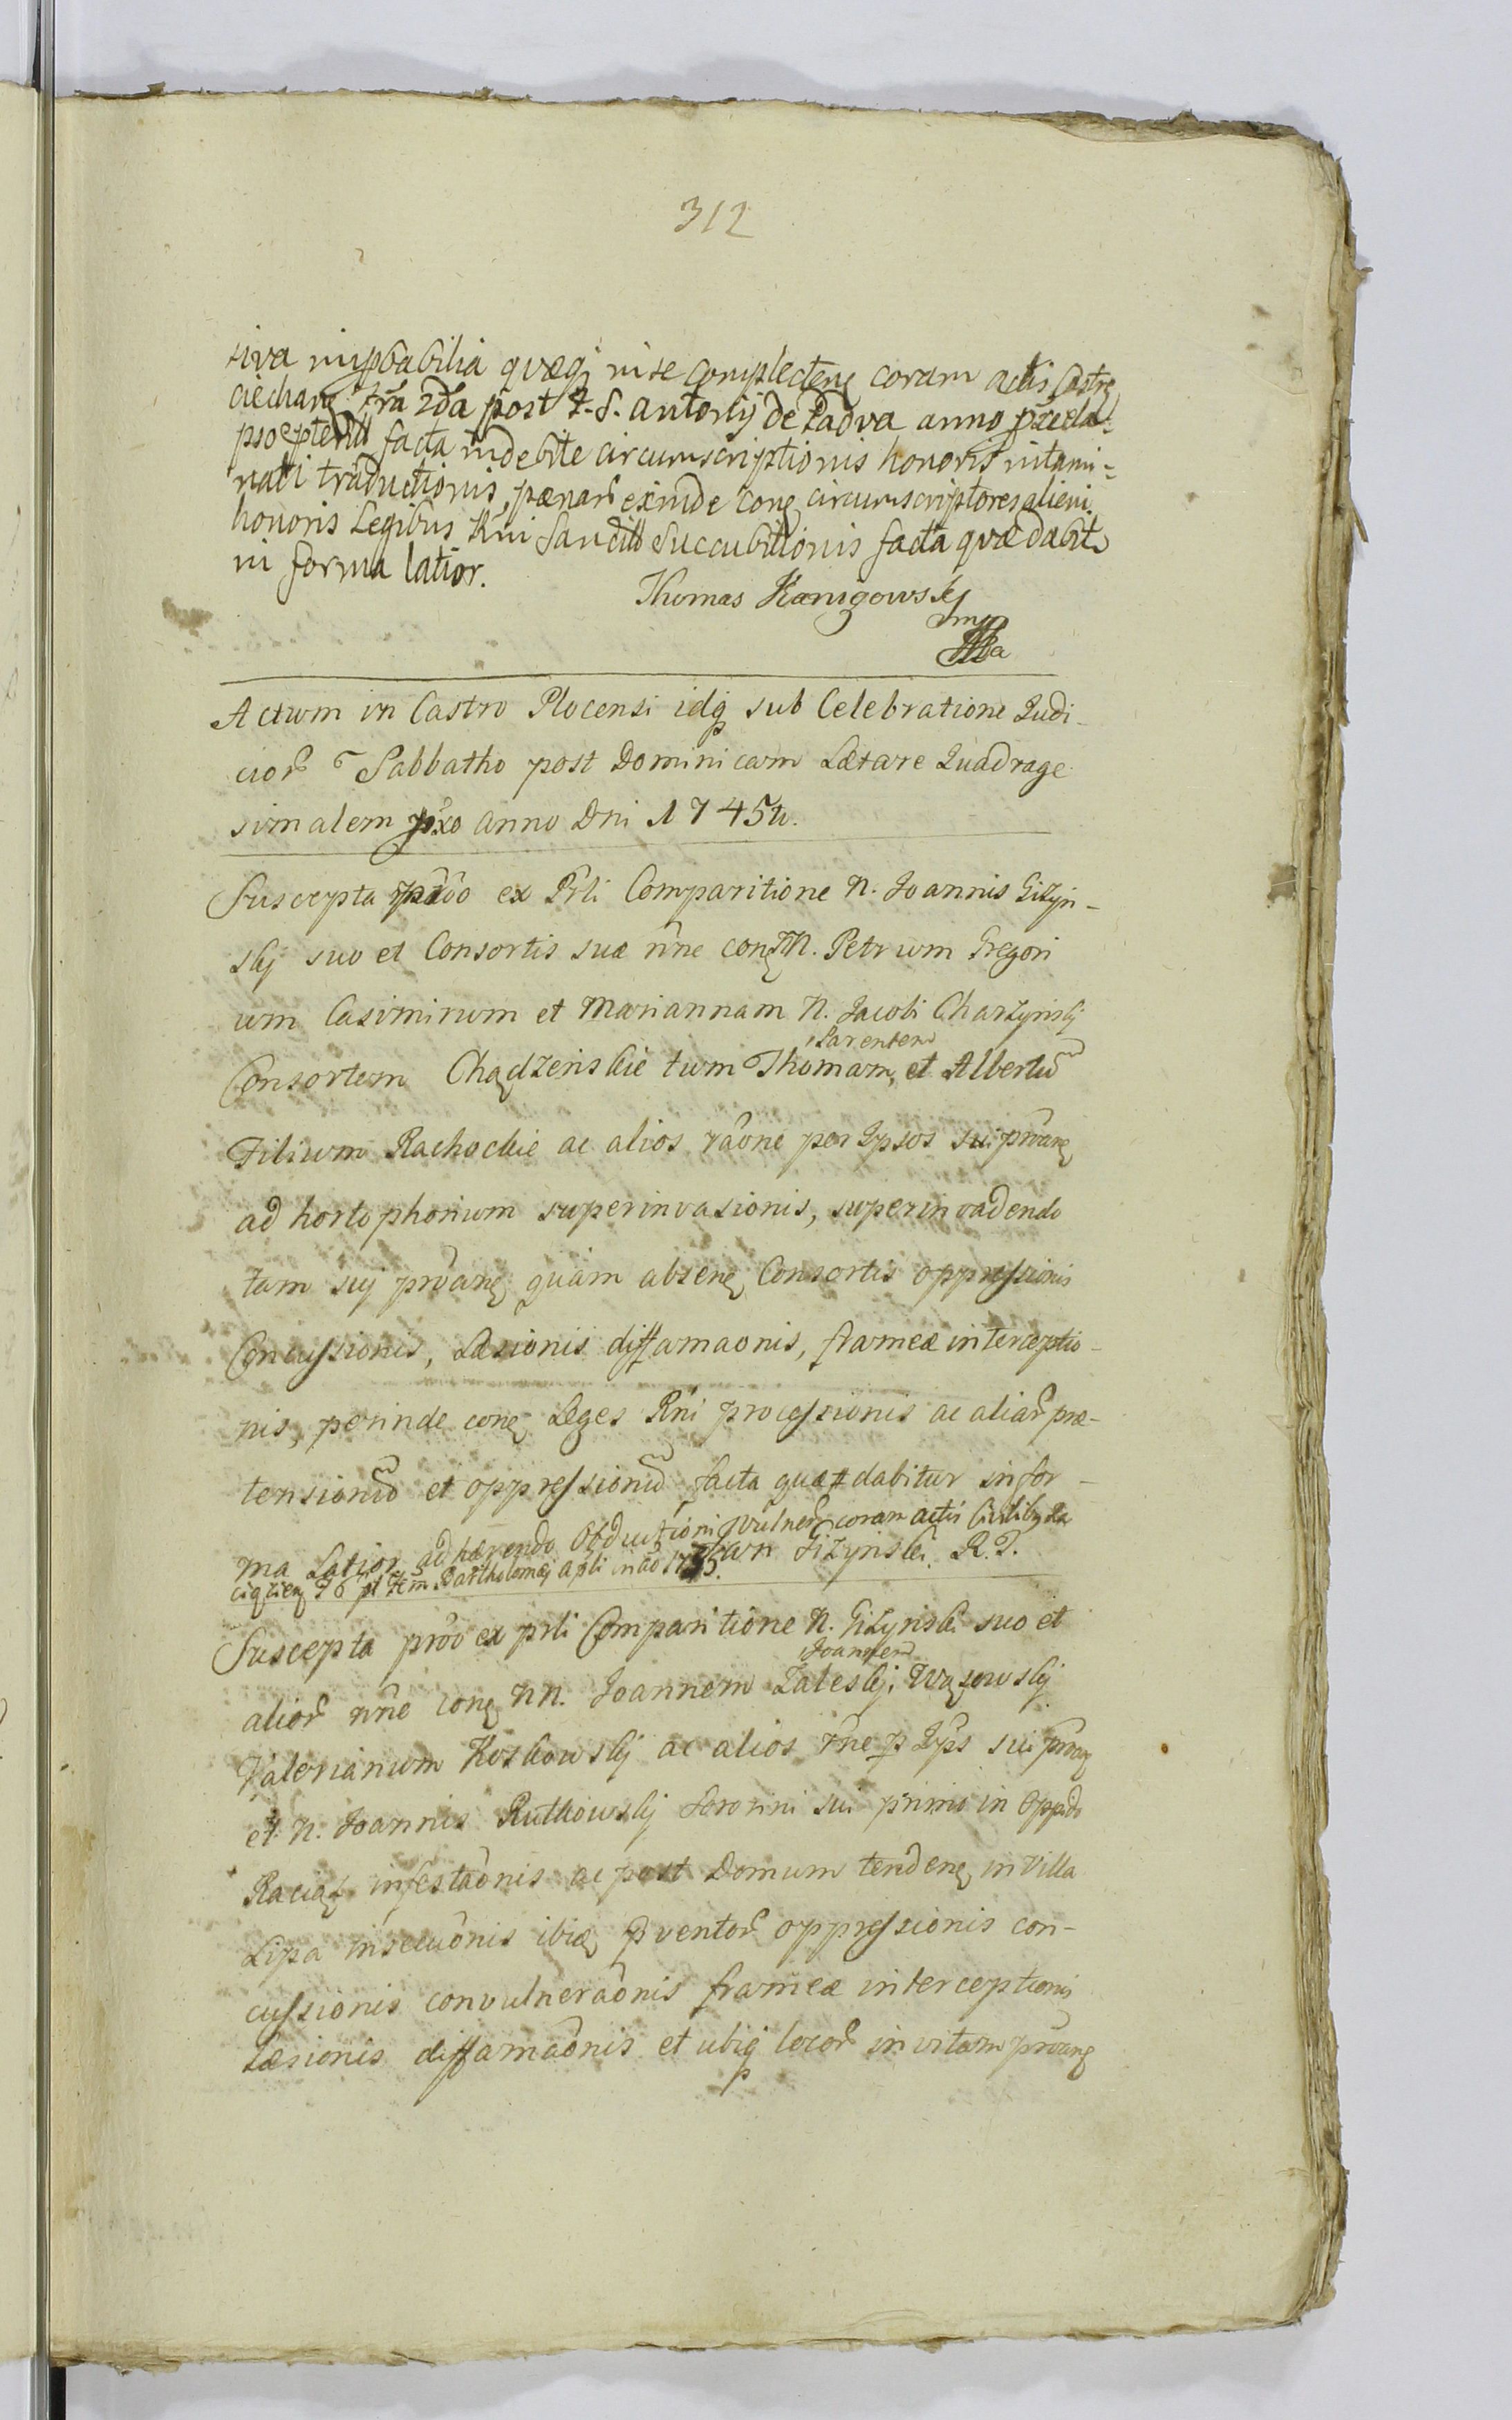 312
siva improbabilia quæq in se complecten coram actis Castren
ciechan fra 2da post F. S. Antonij de Padva anno præela-
pso facta indebite circumscriptionis honoris intami-
nati traductionis, pænarũ exinde con circumscriptores alieni
honoris Legibus Rni sancit succubitionis facta quæ dabit
in forma latior.
Thomas Kanigowskj
mp
Actum in Castro Plocensi idq sub Celebratione Judi-
cior Sabbatho post Dominicam Lætare Quadrage
simalem pxo anno Dni 1745to.
Suscepta pnõo ex Prli Comparitione N. Joannis Giżyn-
skj suo et Consortis suæ nne con NN. Petrum Gregori
um Casimirum et Mariannam N. Jacobi Charzynskj
Parentem
Consortem Chądzenskie tum Thomam, et Albertũ
Filium Rachockie ac alios rãone per Ipsos sui prõan
ad hortophorium superinvasionis, superinvadendo
tam suj prõan quam absen Consortis oppressionis
Concussionis, Læsionis diffamaonis, frameæ interceptio-
nis, perinde con Leges Rni processionis ac aliar præ-
tensionũ et oppressionũ facta quæ dabitur in for-
ma Latior adhærendo Obductioni vulner coram actis Civilib Ra
ciązien F 6 pt Fem Bartholomæj Apli in aõ 1735.
Jan Giżynski R. P.
Suscepta prõo ex prli Comparitione N. Giżynski suo et
Joannem
alior nne con NN. Joannem Zaleskj, Wąsowskj
Valerianum Koskowskj ac alios rne p Ips sui prõan
et N. Joannis Rutkowskj Sororini sui primo in Oppido
Raciąż infestaõnis ac post Domum tenden in Villa
Lipa insecuõnis ibiq p ventor oppressionis con-
cussionis convulneraõnis frameæ interceptionis
Læsionis diffamaõnis et ubiq locor in vitam prõan